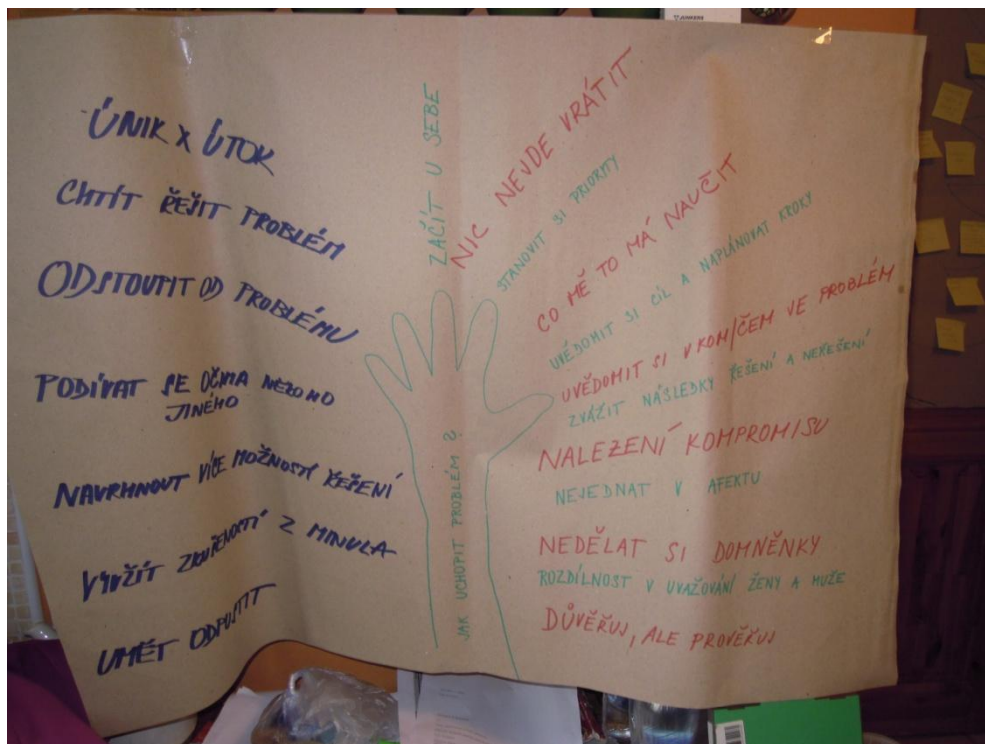 ÚNIK X ÚTOK
CHTÍT ŘEŠIT PROBLÉM
ODSTOUPIT OD PROBLÉMU
PODÍVAT SE OČIMA NĚKOHO
JINÉHO
NAVRHNOUT VÍCE MOŽNOSTÍ ŘEŠENÍ
VYUŽÍT ZKUŠENOSTÍ Z MINULA
UMĚT ODPUSTIT
ZAČÍT U SEBE
JAK UCHOPIT PROBLÉM ?
NIC NEJDE VRÁTIT
STANOVIT SI PRIORITY
CO MĚ TO MÁ NAUČIT
UVĚDOMIT SI CÍL A NAPLÁNOVAT KROKY
UVĚDOMIT SI V KOM/ČEM VE PROBLÉM
ZVÁŽIT NÁSLEDKY ŘEŠENÍ A NEŘEŠENÍ
NALEZENÍ KOMPROMISU
NEJEDNAT V AFEKTU
NEDĚLAT SI DOMNĚNKY
ROZDÍLNOST V UVAŽOVÁNÍ ŽENY A MUŽE
DŮVĚŘUJ, ALE PROVĚŘUJ